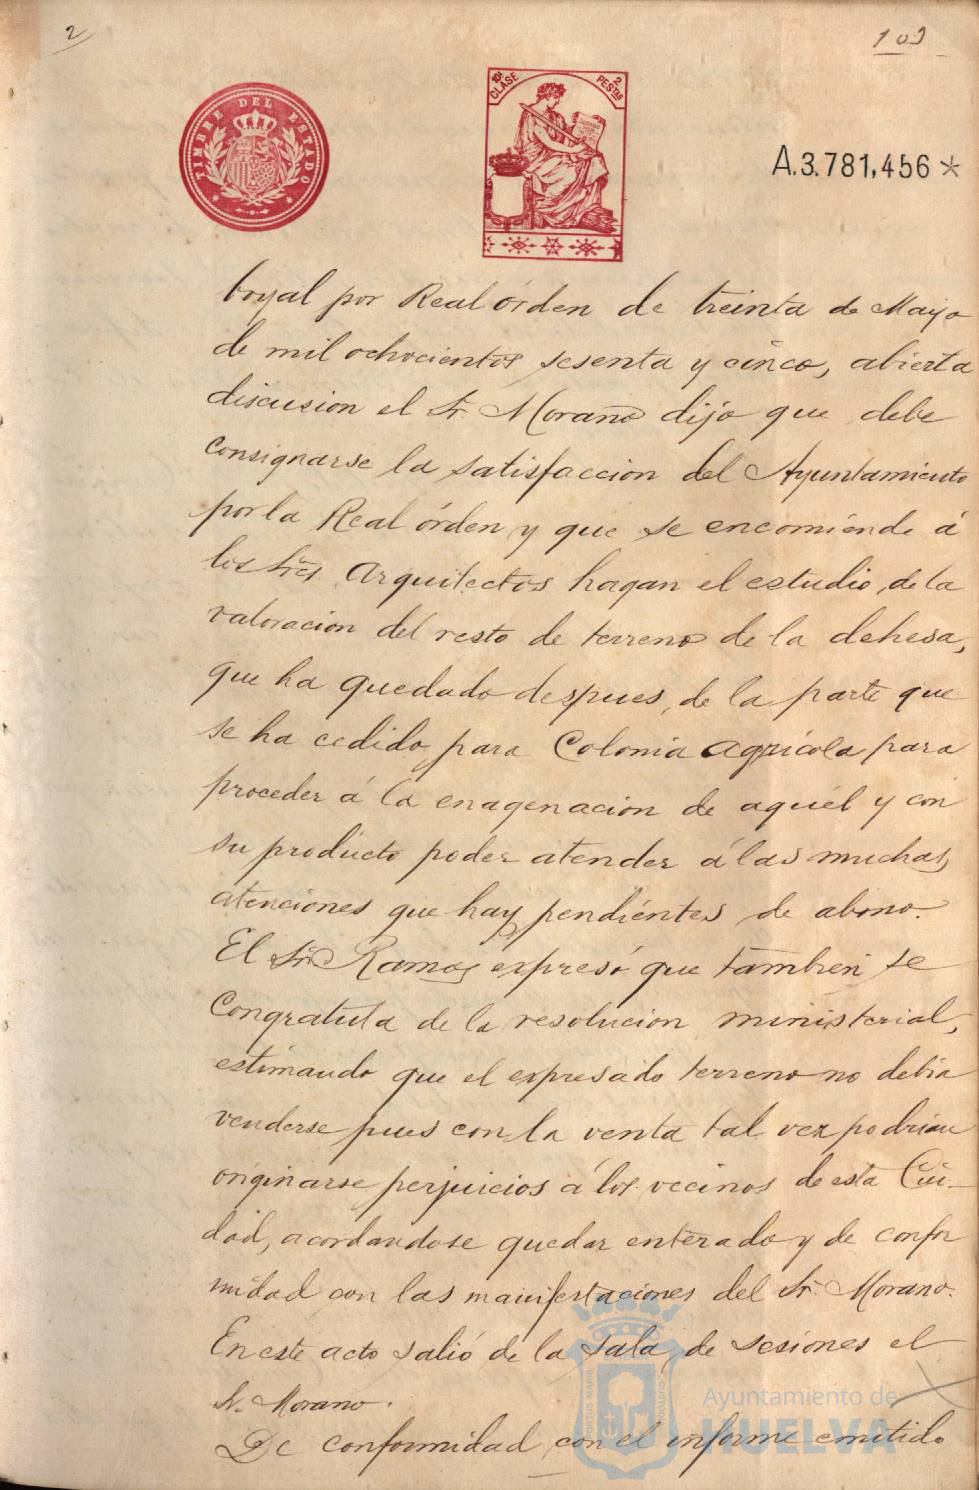 2
103
TIMBRE DEL ESTADO
10ª CLASE
2 PESTAS
A.3.781,456*
boyal por Real órden de treinta de Mayo
de mil ochocientos sesenta y cinco, abierta
discusion el Sr. Morano dijo que debe
consignarse la satisfaccion del Ayuntamiento
por la Real órden y que se encomiende á
los Sres Arquitectos hagan el estudio de la
valoracion del resto de terreno de la dehesa,
que ha quedado despues de la parte que
se ha cedido para Colonia Agricola para
proceder á la enagenacion de aquél y con
su producto poder atender á las muchas
atenciones que hay pendientes de abono.
El Sr. Ramos expresó que tambien se
congratula de la resolucion ministerial,
estimando que el expresado terreno no debia
venderse pues con la venta tal vez podrian
originarse perjuicios á los vecinos de esta Ciu-
dad, acordandose quedar enterado y de confor
midad con las manifestaciones del Sr. Morano.
En este acto salió de la Sala de sesiones el
Sr. Morano.
De conformidad con el informe emitido
Ayuntamiento de
HUELVA